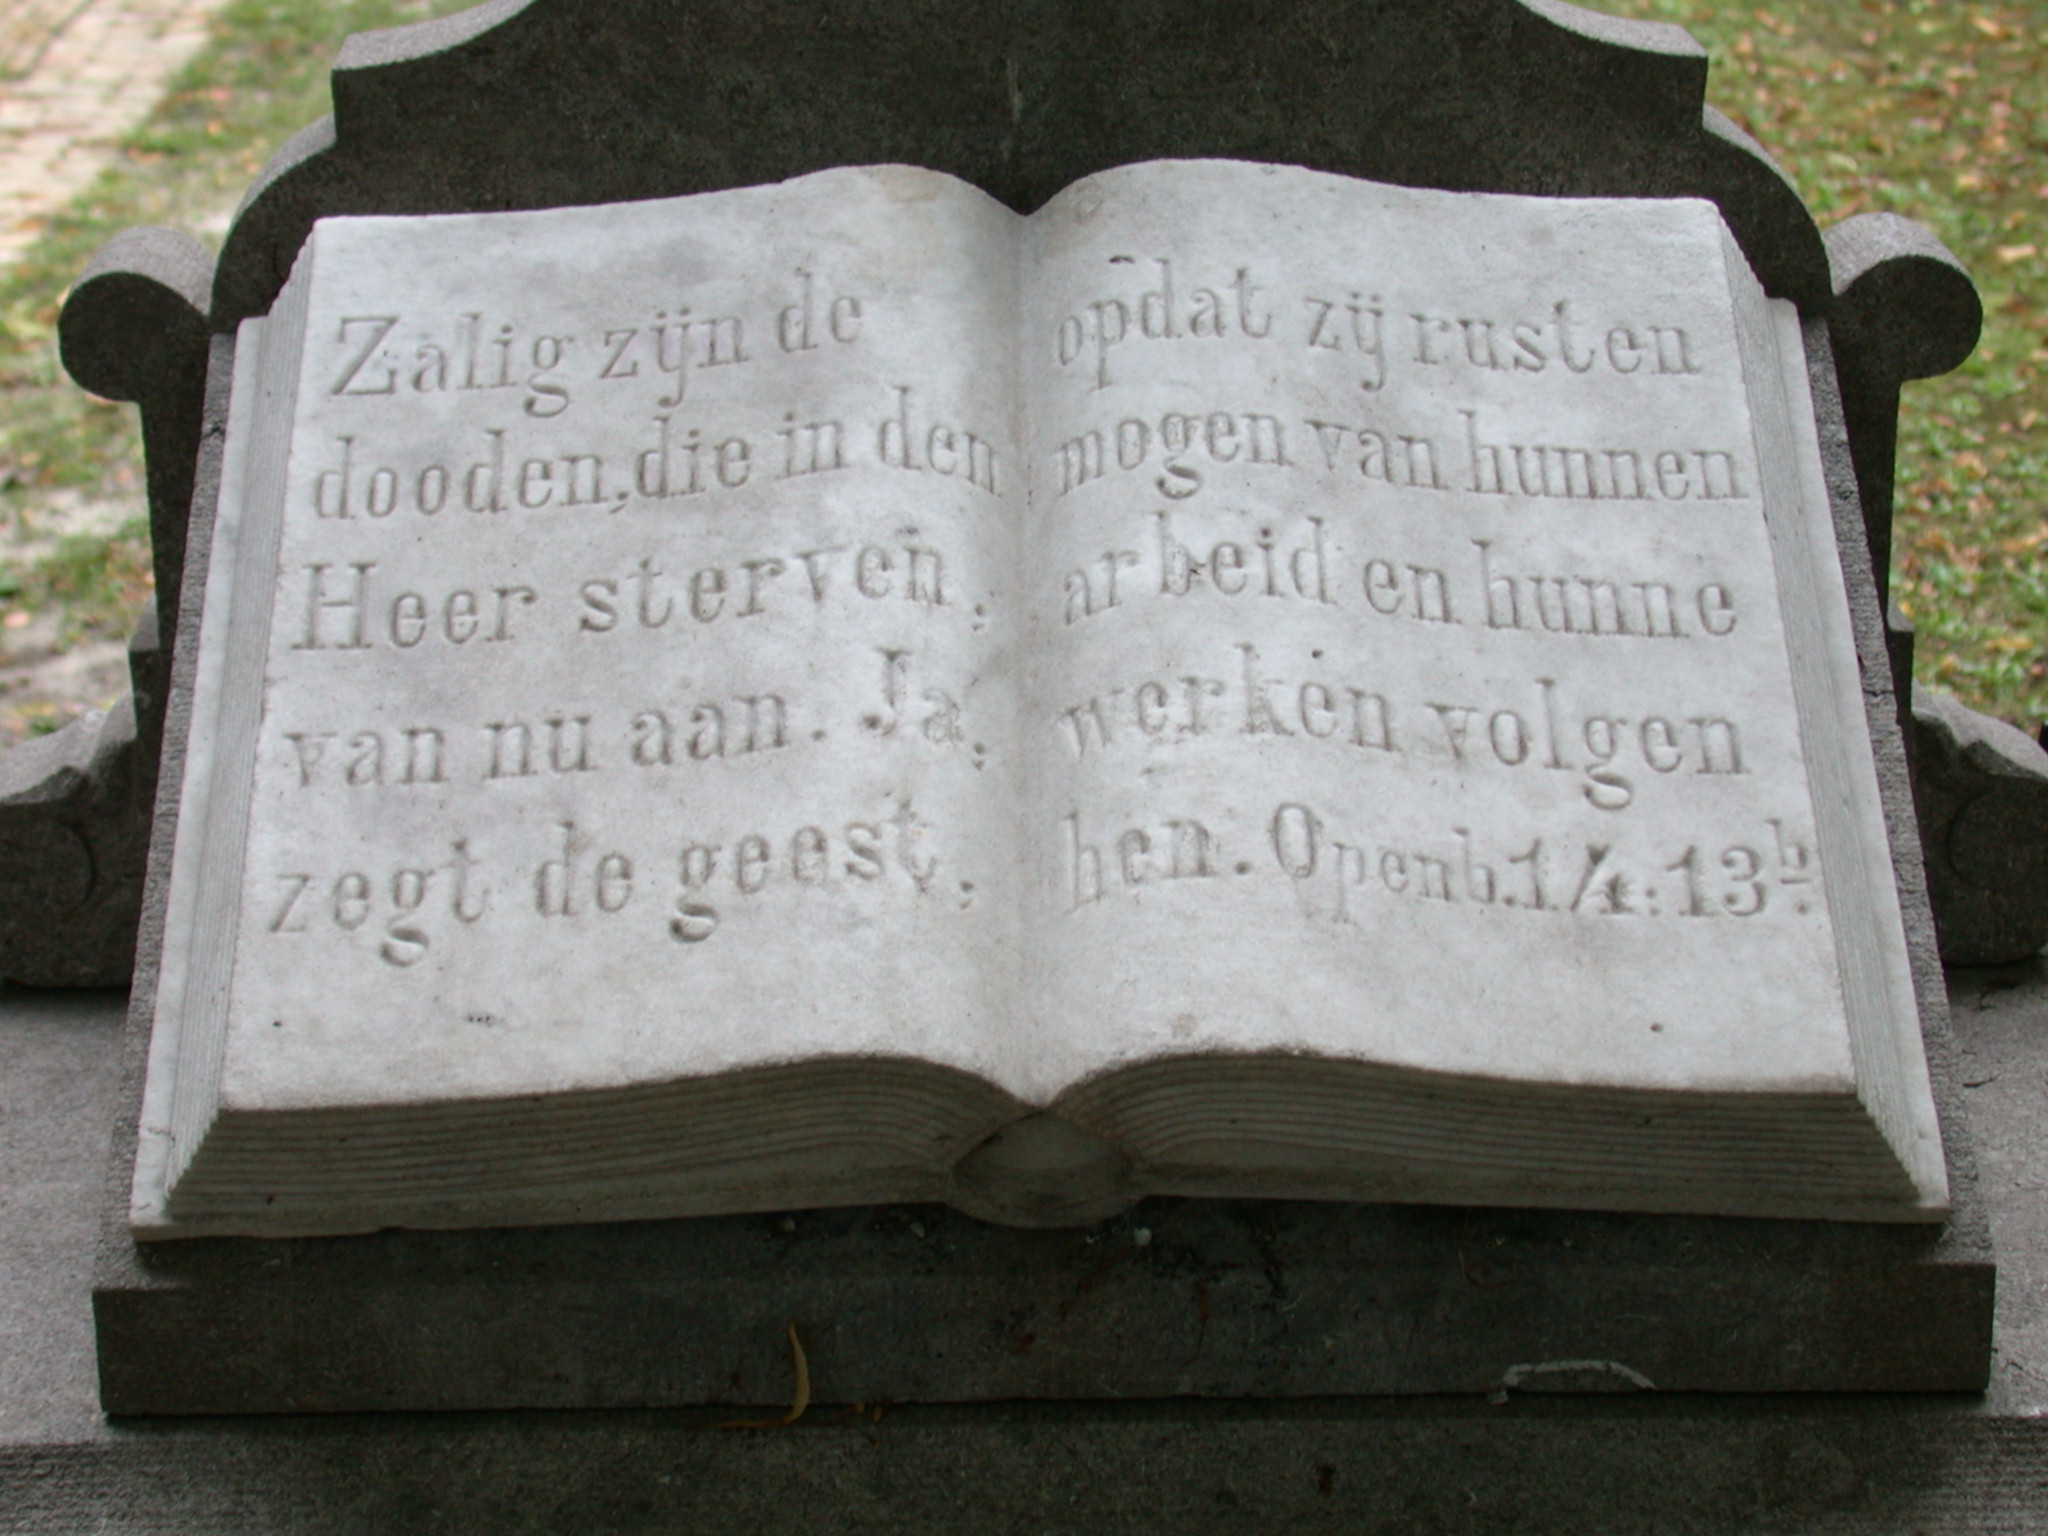 Zalig zijn de
dooden, die in den
Heer sterven,
van nu aan. Ja,
zegt de geest,
opdat zij rusten
mogen van hunnen
arbeid en hunne
werken volgen
hen. Openb. 14:13b.